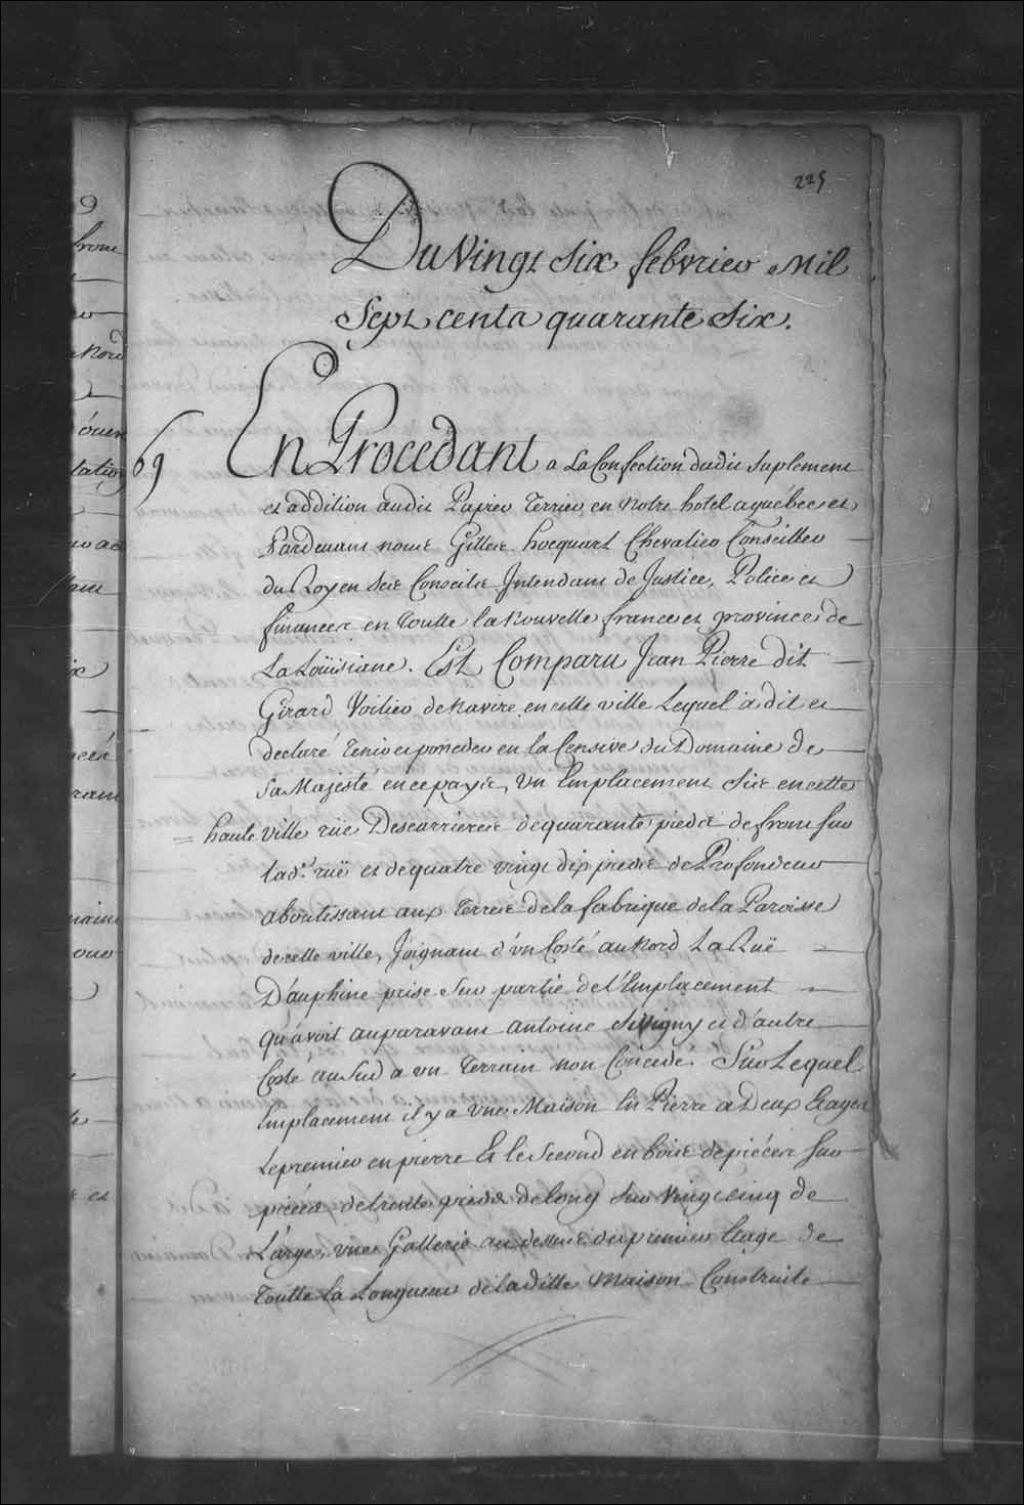 225
Du Vingt six febvrier Mil
Sept cents quarante six.
69 En Procedant a La Confection dudit Suplement
et addition audit Papier Terrier en notre hotel a quebec et
Pardevant nous Gilles hocquart Chevalier Conseiller
du Roy en ses Conseils Intendant de Justice, Police et
finances en Toutte la Nouvelle france et province de
La Loüisiane. Est Comparu Jean Pierre dit
Girard Voilier de navire en cette ville Lequel a dit et
declaré Tenir et posseder en la Censive du Domaine de
Sa Majesté en ce pays, un Emplacement sis en cette
haute ville rüe Descarrieres de quarante pieds de front sur
lad.e rüe et de quatre vingt dix pieds de Profondeur
aboutissant aux Terres de la fabrique de la Paroisse
de cette ville, Joignant d'un Costé au Nord La Ruë
D'auphine prise Sur partie de l'Emplacement
qu'avoit auparavant antoine Sevigny et d'autre
Costé au Sud a un Terrain non Concedé. Sur Lequel
Emplacement il y a une Maison En Pierre a Deux Etages
Le premier en pierre Et le Second en bois de pièces sur
pièces de trente pieds de long sur Vingt cinq de
Large, une Gallerie au dessus du premier Etage de
Toutte La Longueur de laditte Maison Construite